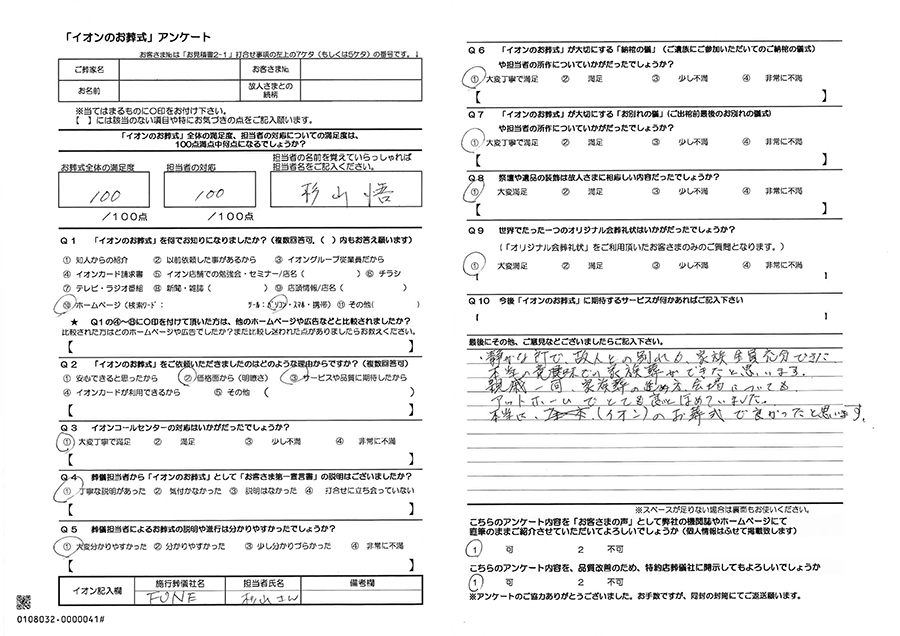 「イオンのお葬式」アンケート
お客さま№は「お見積書2-1」打合せ事項の左上の7ケタ（もしくは5ケタ）の番号です。↓
ご葬家名
お客さま№
お名前
故人さまとの
続柄
※当てはまるものに○印をお付け下さい。
【　】には該当のない項目や特にお気づきの点をご記入願います。
「イオンのお葬式」全体の満足度、担当者の対応についての満足度は、
100点満点中何点になるでしょうか？
お葬式全体の満足度
担当者の対応
担当者の名前を覚えていらっしゃれば
担当者名をご記入ください。
100
100
杉山 悟
／100点
／100点
Q１　「イオンのお葬式」を何でお知りになりましたか？（複数回答可、（　）内もお答え願います）
① 知人からの紹介　② 以前依頼した事があるから　③ イオングループ従業員だから
④ イオンカード請求書　⑤ イオン店舗での勉強会・セミナー/店名（　）⑥ チラシ
⑦ テレビ・ラジオ番組　⑧ 新聞・雑誌（　）⑨ 店頭情報/店名（　）
⑩ ホームページ（検索ﾜｰﾄﾞ：　ﾂｰﾙ：ﾊﾟｿｺﾝ・ｽﾏﾎ・携帯）⑪ その他（　）
★　Q１の④～⑧に○印を付けて頂いた方は、他のホームページや広告などと比較されましたか？
比較された方はどのホームページや広告でしたか？また比較し迷われた点がありましたらお教えください。
【　】
Q２　「イオンのお葬式」をご依頼いただきましたのはどのような理由からですか？（複数回答可）
① 安心できると思ったから　② 価格面から（明瞭さ）　③ サービスや品質に期待したから
④ イオンカードが利用できるから　⑤ その他（　）
【　】
Q３　イオンコールセンターの対応はいかがだったでしょうか？
① 大変丁寧で満足　② 満足　③ 少し不満　④ 非常に不満
【　】
Q４　葬儀担当者から「イオンのお葬式」として「お客さま第一宣言書」の説明はございましたか？
① 丁寧な説明があった　② 気付かなかった　③ 説明はなかった　④ 打合せに立ち会っていない
【　】
Q５　葬儀担当者によるお葬式の説明や進行は分かりやすかったでしょうか？
① 大変分かりやすかった　② 分かりやすかった　③ 少し分かりづらかった　④ 非常に不満
【　】
イオン記入欄
施行葬儀社名
担当者氏名
備考欄
FUNE
杉山さん
0108032-0000041#
Q６　「イオンのお葬式」が大切にする「納棺の儀」（ご遺族にご参加いただいてのご納棺の儀式）
や担当者の所作についていかがだったでしょうか？
① 大変丁寧で満足　② 満足　③ 少し不満　④ 非常に不満
【　】
Q７　「イオンのお葬式」が大切にする「お別れの儀」（ご出棺前最後のお別れの儀式）
や担当者の所作についていかがだったでしょうか？
① 大変丁寧で満足　② 満足　③ 少し不満　④ 非常に不満
【　】
Q８　祭壇や遺品の装飾は故人さまに相応しい内容だったでしょうか？
① 大変満足　② 満足　③ 少し不満　④ 非常に不満
【　】
Q９　世界でたった一つのオリジナル会葬礼状はいかがだったでしょうか？
（「オリジナル会葬礼状」をご利用頂いたお客さまのみのご質問となります。）
① 大変満足　② 満足　③ 少し不満　④ 非常に不満
【　】
Q10　今後「イオンのお葬式」に期待するサービスが何かあればご記入下さい
【　】
最後にその他、ご意見などございましたらご記入下さい。
・静かな所で、故人との別れも、家族全員充分できた
本当の意味での家族葬ができたと思います。
親戚一同、家族葬の進め方、会場についても
アットホームでとても良いとほめていました。
本当に、（イオン）のお葬式で良かったと思います。
※スペースが足りない場合は裏面もお使いください。
こちらのアンケート内容を「お客さまの声」として弊社の機関誌やホームページにて
直筆のままご紹介させていただいてよろしいでしょうか（個人情報はふせて掲載致します）
1　可　2　不可
こちらのアンケート内容を、品質改善のため、特約店葬儀社に開示してもよろしいでしょうか
1　可　2　不可
※アンケートのご協力ありがとうございました。お手数ですが、同封の封筒にてご返送願います。